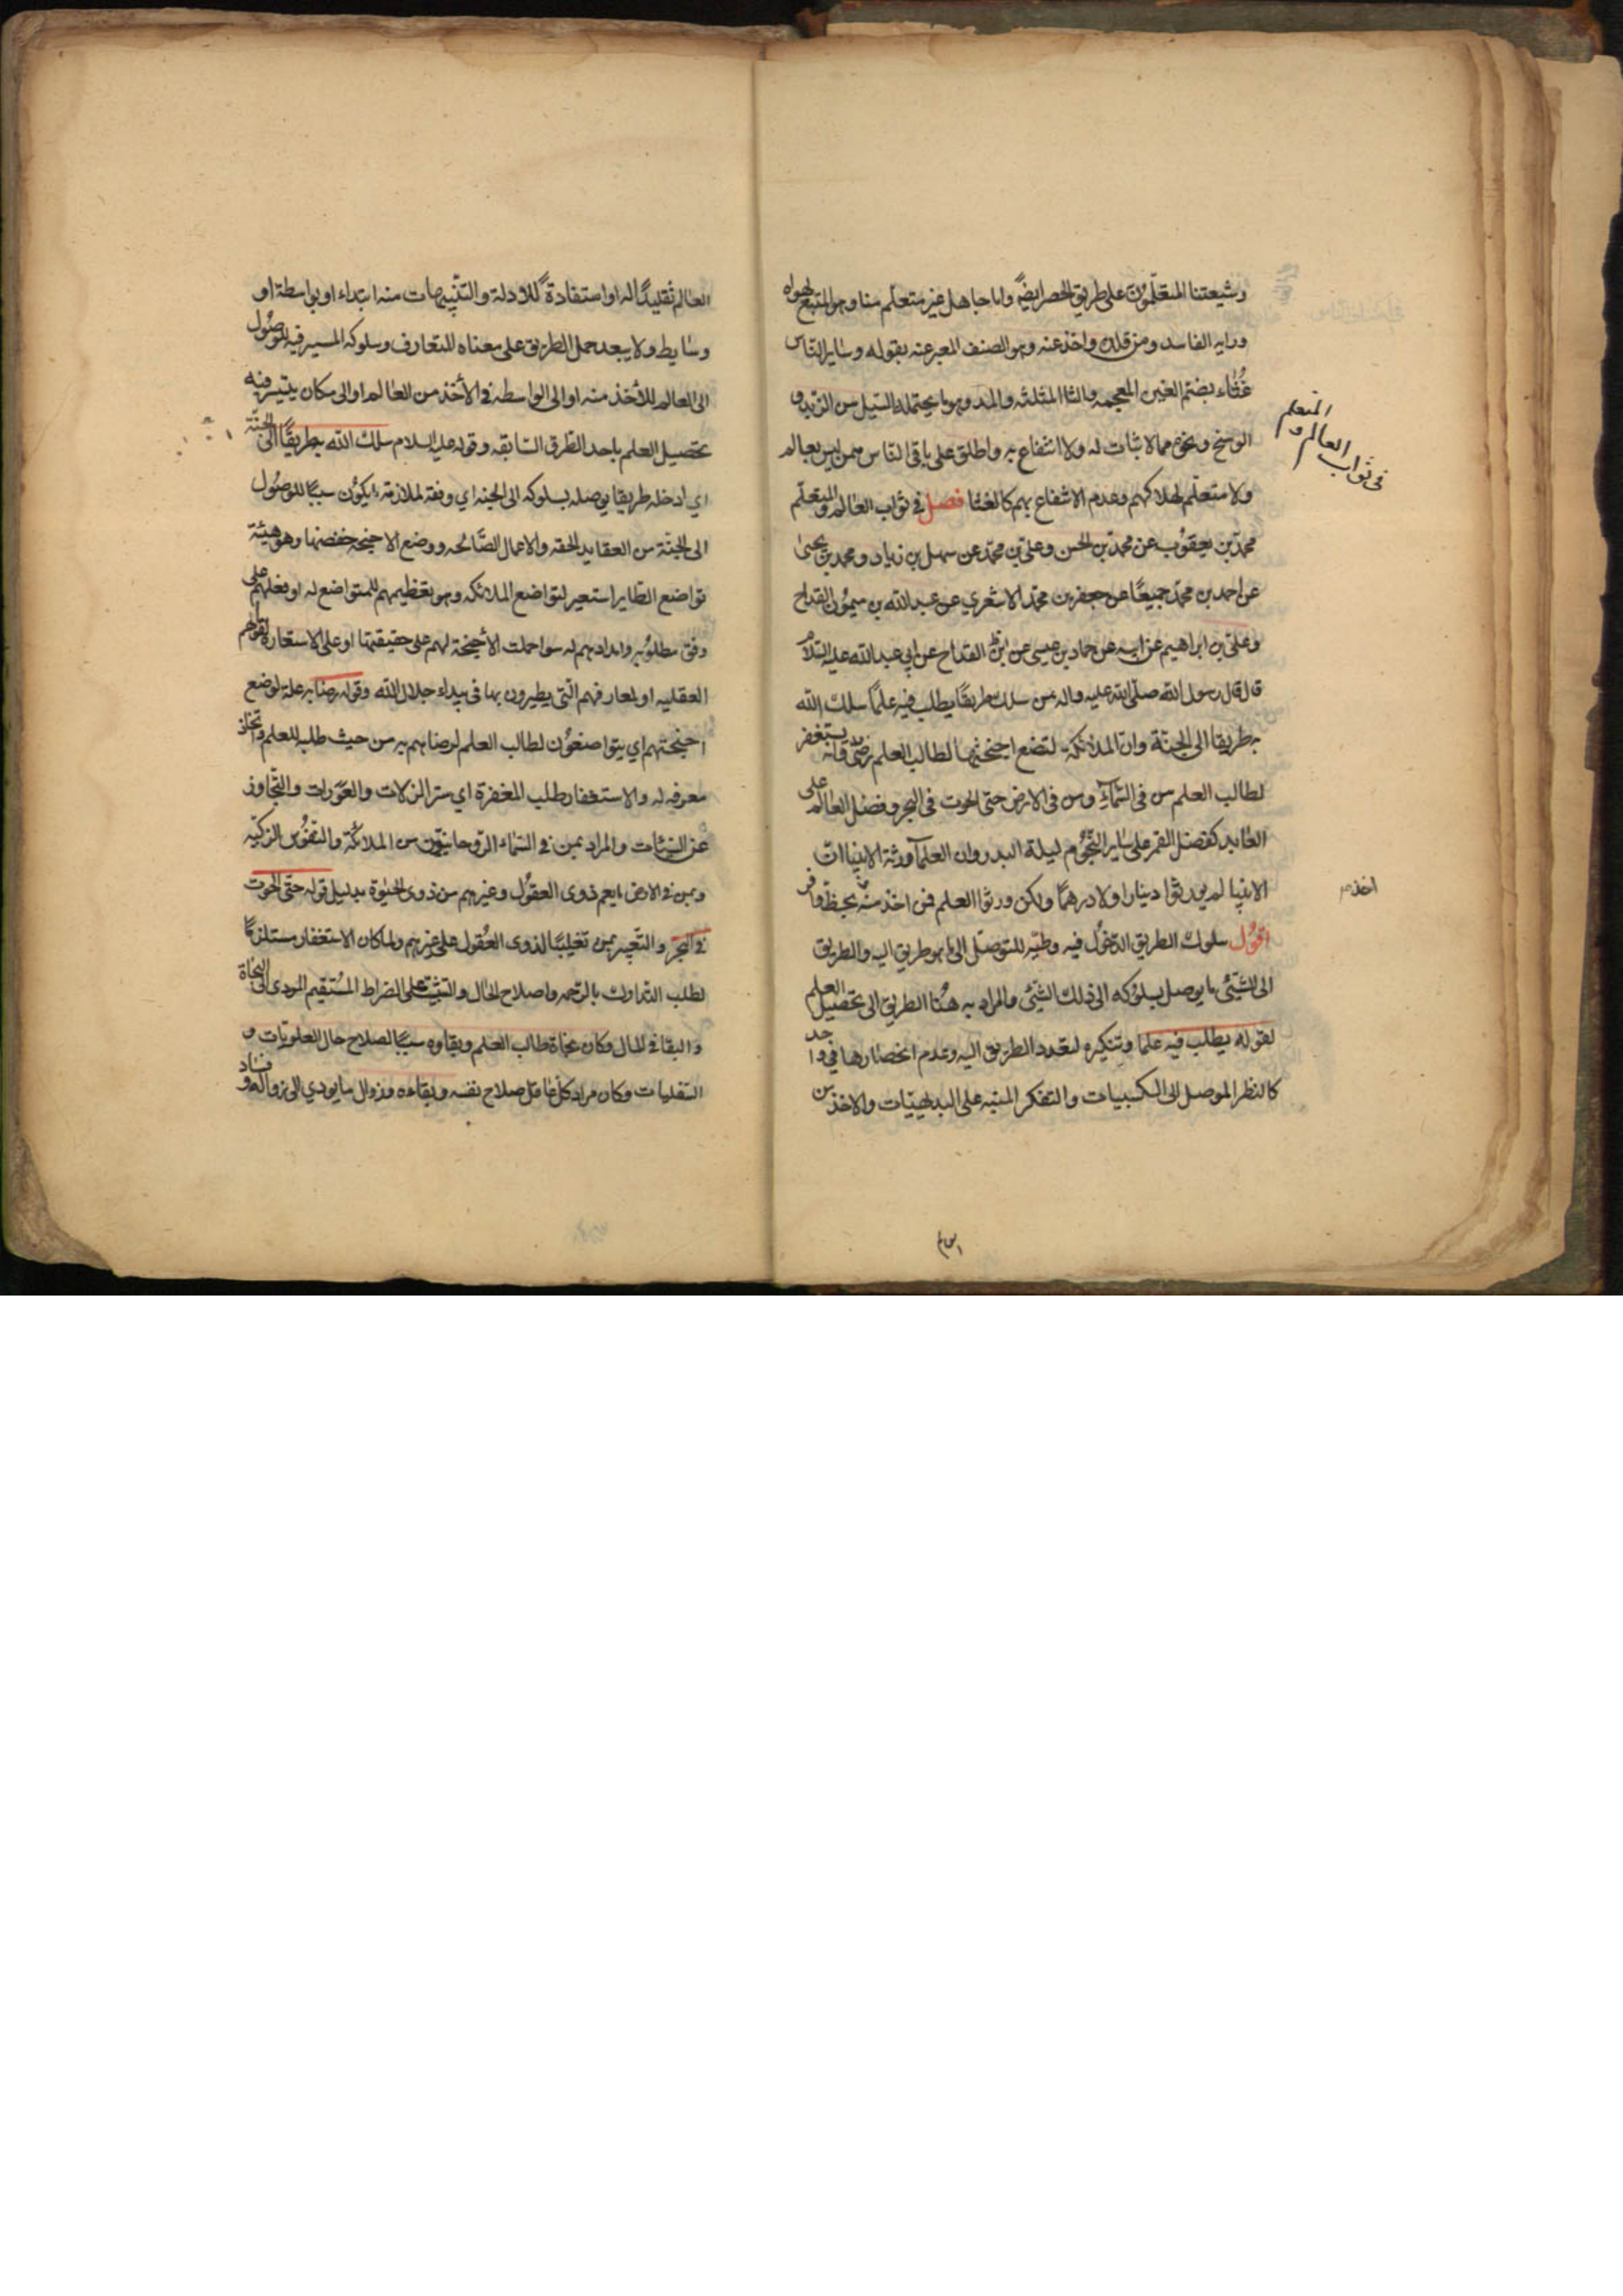 وشيعتنا المتعلمون على طريق الحصر ايضًا واما جاهل غير متعلم منا وهو المتبع لهواه
ورايه الفاسد ومن قلده واخذ عنه وهو الصنف المعبر عنه بقوله وساير الناس
غُثاء بضم الغين المعجمه والثا المثلثه والمد وهو ما يحتمله السيل من الزبد و
الوسخ ونحوهما مما لا ثبات له ولا انتفاع به واطلق على باقى الناس ممن ليس بعالم
ولا متعلم لهلاكهم وعدم الانتفاع بهم كالغثا فصل فى ثواب العالم والمتعلم
فى ثواب العالم و المتعلم
محمد بن يعقوب عن محمد بن الحسن وعلى بن محمد عن سهل بن زياد ومحمد بن يحيى
عن احمد بن محمد جميعًا عن جعفر بن محمد الاشعري عن عبد الله بن ميمون القداح
وعلى بن ابراهيم عن ابيه عن حماد بن عيسى عن القداح عن ابي عبد الله عليه السلام
قال قال رسول الله صلى الله عليه واله من سلك طريقًا يطلب فيه علمًا سلك الله
به طريقا الى الجنة وان الملائكة لتضع اجنحتها لطالب العلم رضى به وانه يستغفر
لطالب العلم من فى السماء ومن فى الارض حتى الحوت فى البحر وفضل العالم على
العابد كفضل القمر على ساير النجوم ليلة البدر وان العلماء ورثة الانبيا ان
الانبيا لم يورثوا دينارا ولا درهمًا ولكن ورثوا العلم فمن اخذ منه بحظ وافر
اخذ
اقول سلوك الطريق الدخول فيه وطيه للتوصل الى ما هو طريق اليه والطريق
الى الشيئ ما يوصل بسلوكه الى ذلك الشيئ والمراد به هُنا الطريق الى تحصيل العلم
لقوله يطلب فيه علما وتنكيره لتعدد الطريق اليه وعدم انحصارها في واحد
كالنظر الموصل الى الكسبيات والتفكر المنبه على البديهيات والاخذ من
العالم تقليدًا له او استفادةً للادلة والتنبيهات منه ابتداء او بواسطة او
وسايط ولا يبعد حمل الطريق على معناه المتعارف وسلوكه المسير فيه للوصول
الى العالم للأخذ منه او الى الواسطه فى الأخذ من العالم او الى مكان يتيسر فيه
تحصيل العلم باحد الطرق السابقه وقوله عليه السلام سلك الله به طريقًا الى الجنة
اي ادخله طريقا يوصله بسلوكه الى الجنه اي وفقه لملازمة ما يكون سببًا للوصول
الى الجنة من العقايد الحقه والاعمال الصالحه ووضع الاجنحه خفضها وهو هيئة
تواضع الطاير استعير لتواضع الملائكه وهو تعظيمهم للمتواضع له او فعلهم على
وفق مطلوبه وامدادهم له سوا حملت الأجنحة لهم على حقيقتها او على الاستعارة لقواهم
العقليه او لمعارفهم التى يطيرون بها فى بيداء جلال الله وقوله رضا به علة لوضع
اجنحتهم اي يتواضعون لطالب العلم لرضاهم به من حيث طلبه للعلم
معرفه له والاستغفار طلب المغفرة اي ستر الزلات والعورات والتجاوز
عن السيئات والمراد بمن فى السماء الروحانيون من الملائكة والنفوس الزكيه
وبمن فى الارض ما يعم ذوى العقول وغيرهم من ذوى الحيوة بدليل قوله حتى الحوت
فى البحر والتعبير بمن تغليبًا لذوى العُقول على غيرهم ولما كان الاستغفار مستلزمًا
لطلب التدارك بالرحمه واصلاح الحال والتثبت على الصراط المُستقيم المودى الى النجاة
والبقا فى المال وكان نجاة طالب العلم وبقاوه سببًا لصلاح حال العلويات و
السفليات وكان مراد كل عاقل صلاح نفسه وبقاءه وزوال ما يودي الى زواله و فساد